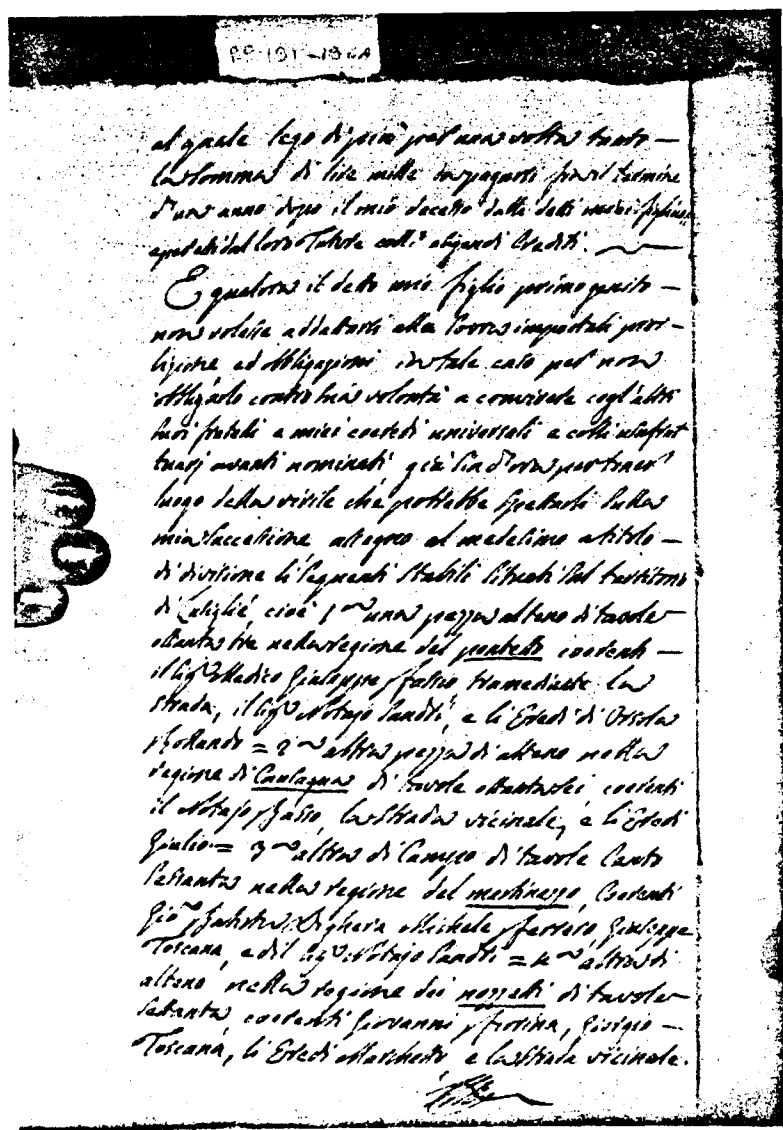 al quale lego di più per una volta tanto —
la somma di lire mille da pagarsi fra il termine
d'un anno dopo il mio decesso dalli detti miei figli
e per essi dal loro Tutore colli esigendi Crediti.
E qualora il detto mio figlio primogenito —
non volesse addattarsi alla sovra impostali
ed obbligazioni in tale caso per non
obbligarlo contro sua volontà a convivere cogl'altri
suoi fratelli e miei coeredi universali e colli usufrut
tuarj avanti nominati già sin d'ora per tener
luogo della virile che potrebbe spettarli sulla
mia successione assegno al medesimo a titolo —
di divisione li seguenti stabili situati sul territorio
di cioè 1° una pezza alteno di tavole
ottanta tre nella regione del coerenti —
il Sig.r Medico Giuseppe tramediante la
strada, il Sig.r Notajo, e li Eredi di Orsola
= 2° altra pezza di alteno nella
regione di di tavole ottanta sei coerenti
il Notajo Basso, la strada vicinale, e li Eredi
Giulio = 3° altra di Campo di tavole Cento
sessanta nella regione del martinazzo, Coerenti
Gio Batista Michele Ferrero, Giuseppe
Toscana, ed il Sig.r Notajo = 4° altra di
alteno nella regione dei di tavole
settanta coerenti Giovanni Fiorina, Giorgio —
Toscana, li Eredi Marchetto e la strada vicinale.